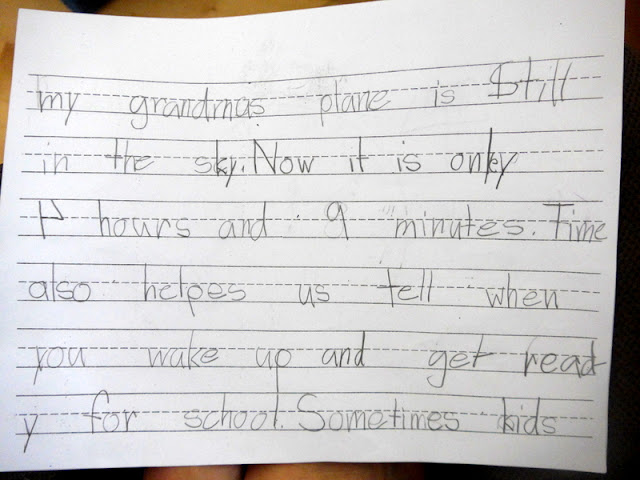 my grandmas plane is still
in the sky. Now it is only
hours and 9 minutes. Time
also helpes us tell when
you wake up and get read
y for school. Sometimes kids